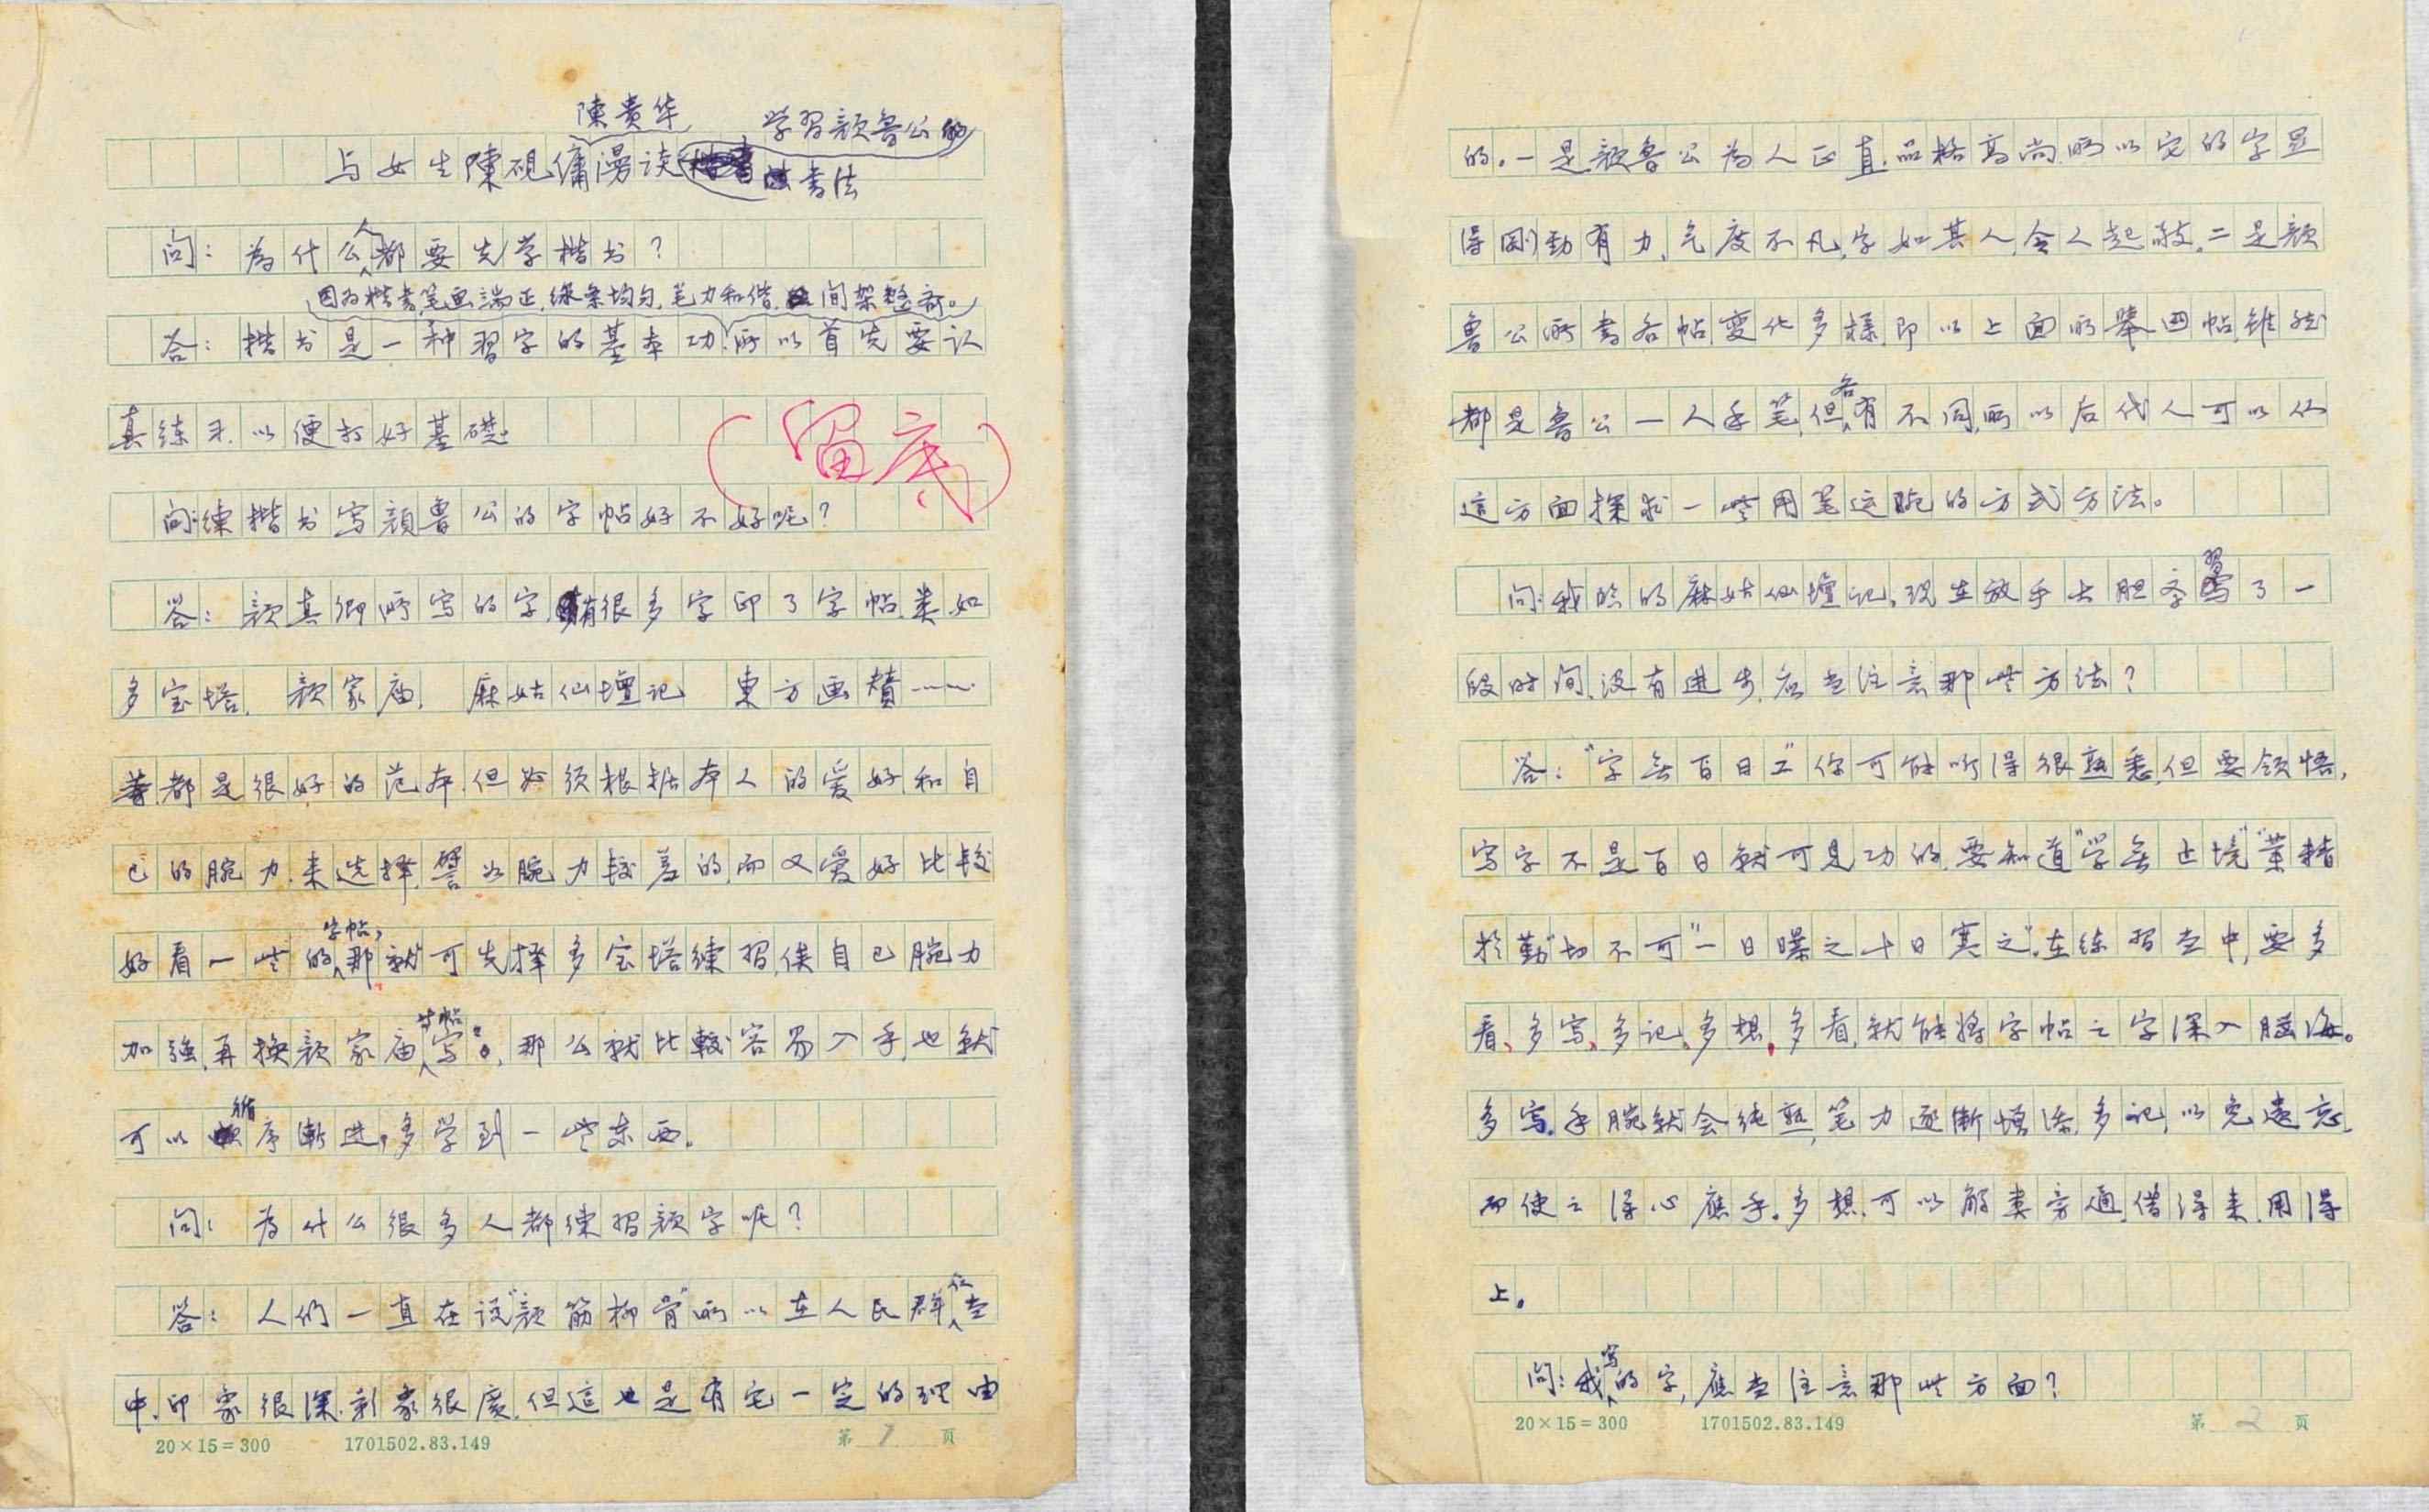 陳贵华 学習颜鲁公的
与女生陳硯傭漫谈書法
问：为什么人都要先学楷书？
因为楷書，笔画端正，缐条均匀，笔力和偕，间架整齐。
答：楷书是一种習字的基本功，所以首先要认
真练习，以便打好基礎。
（留底）
问：练楷书写颜鲁公的字帖好不好呢？
答：颜真卿所写的字，有很多字印了字帖，类如
多宝塔，颜家庙，麻姑仙壇记 東方画賛……
等都是很好的范本，但必须根据本人的爱好和自
己的腕力，来选择，譬如腕力较差的，而又爱好比较
字帖，
好看一些的那就可先择多宝塔練習，俟自己腕力
廿帖
加強，再换颜家庙写。那么就比較容易入手，也就
循
可以序漸进，多学到一些东西。
问：为什么很多人都练習颜字呢？
答：人们一直在说“颜筋柳骨”所以在人民群众当
中，印象很深，影象很廣，但這也是有它一定的理由
20×15=300 1701502.83.149 第 1 页
的。一是颜鲁公为人正直，品格高尚，所以它的字显
得刚劲有力，气度不凡，字如其人，令人起敬，二是颜
鲁公所書各帖，变化多樣，即以上面所舉四帖，雖然
都是鲁公一人手笔，但各有不同，所以后代人可以从
這方面探求一些用笔运腕的方式方法。
问：我临的麻姑仙壇记，现在放手大胆李習了一
段时间，没有進步，应当注意那些方法？
答：“字無百日工”你可能听得很熟悉，但要领悟，
写字不是百日就可見功的，要知道“学無止境”“業精
於勤”切不可“一日曝之十日寒之”。在练習当中，要多
看、多写、多记、多想。多看，就能將字帖之字深入脑海。
多写，手腕就会纯熟，笔力逐漸增添，多记，以免遗忘，
而使之得心應手。多想，可以解类旁通，借得来，用得
上。
问：我写的字，應当注意那些方面？
20×15=300 1701502.83.149 第 2 页